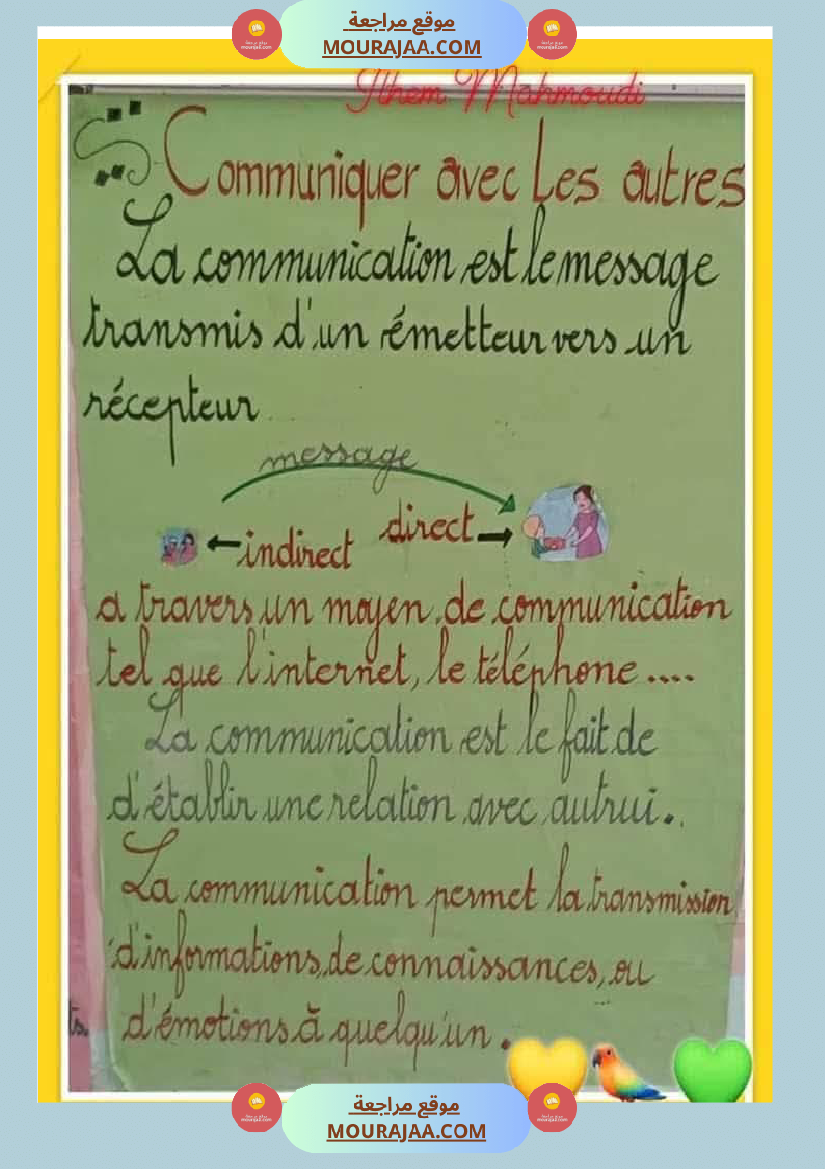 موقع مراجعة
MOURAJAA.COM
Ilhem Mahmoudi
Communiquer avec Les autres
La communication est le message
transmis d'un émetteur vers un
récepteur
message
←indirect direct→
a travers un moyen de communication
tel que l'internet, le téléphone ....
La communication est le fait de
d'établir une relation avec autrui..
La communication permet la transmission
d'informations, de connaissances, ou
d'émotions à quelqu'un.
ts.
موقع مراجعة
MOURAJAA.COM